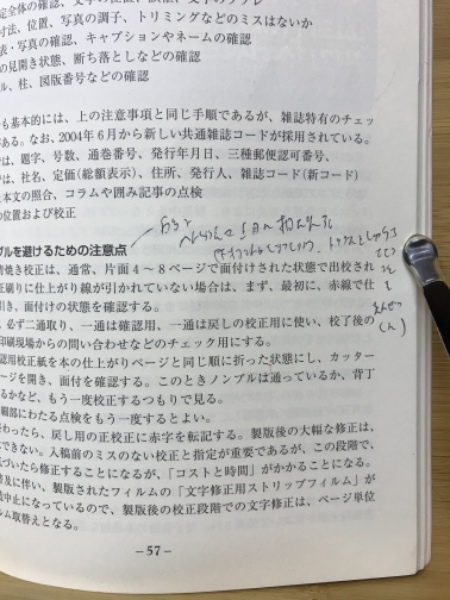 定全体の確認、文字の位置、
寸法、位置、写真の調子、トリミングなどのミスはないか
表・写真の確認、キャプションやネームの確認
の見開き状態、断ち落としなどの確認
ル、柱、図版番号などの確認
も基本的には、上の注意事項と同じ手順であるが、雑誌特有のチェッ
がある。なお、2004年6月から新しい共通雑誌コードが採用されている。
では、題字、号数、通巻番号、発行年月日、三種郵便認可番号、
では、社名、定価(総額表示)、住所、発行人、雑誌コード(新コード)
と本文の照合、コラムや囲み記事の点検
の位置および校正
ブルを避けるための注意点
青焼き校正は、通常、片面4～8ページで面付けされた状態で出校され
正刷りに仕上がり線が引かれていない場合は、まず、最初に、赤線で仕
引き、面付けの状態を確認する。
、必ず二通取り、一通は確認用、一通は戻しの校正用に使い、校了後の
印刷現場からの問い合わせなどのチェック用にする。
認用校正紙を本の仕上がりページと同じ順に折った状態にし、カッター
ページを開き、面付を確認する。このときノンブルは通っているか、背丁
るかなど、もう一度校正するつもりで見る。
細部にわたる点検をもう一度するとよい。
終わったら、戻し用の正校正に赤字を転記する。製版後の大幅な修正は、
できない。入稿前のミスのない校正と指定が重要であるが、この段階で、
気づいたら修正することになるが、「コストと時間」がかかることになる。
普及に伴い、製版されたフィルムの「文字修正用ストリップフィルム」が
中止になっているので、製版後の校正段階での文字修正は、ページ単位
ルム取替えとなる。
－57－